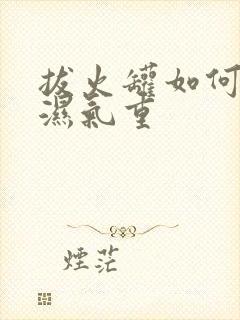 拔火罐如何
濕氣重
煙茫